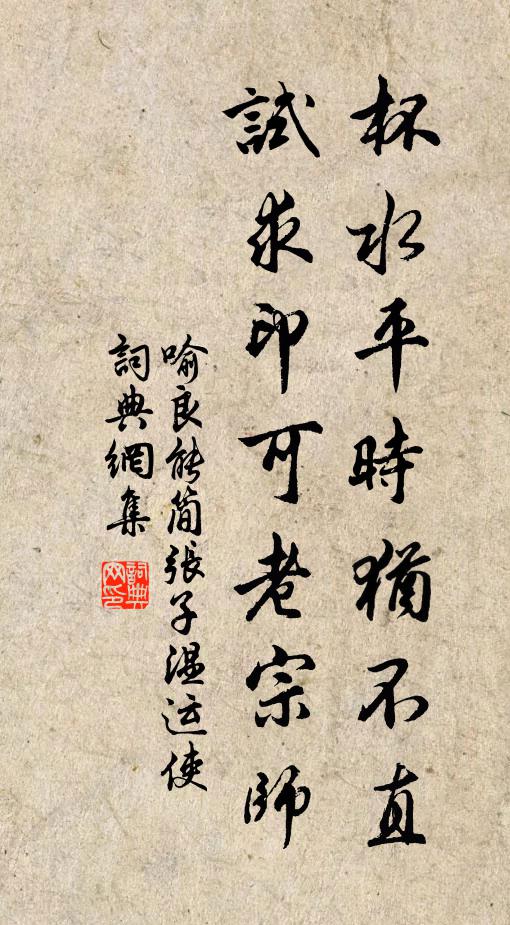 杯水平時猶不直
試求印可老宗師
喻良能簡張子温运使
詞典網集
詞典
网印